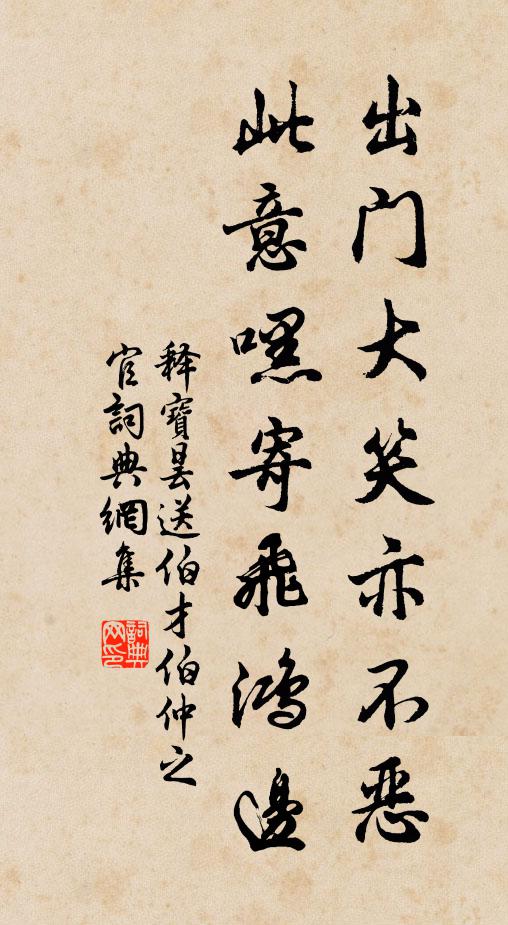 出门大笑亦不恶
此意嘿寄飛鴻邊
释寶昙送伯才伯仲之
官詞典網集
詞典网印